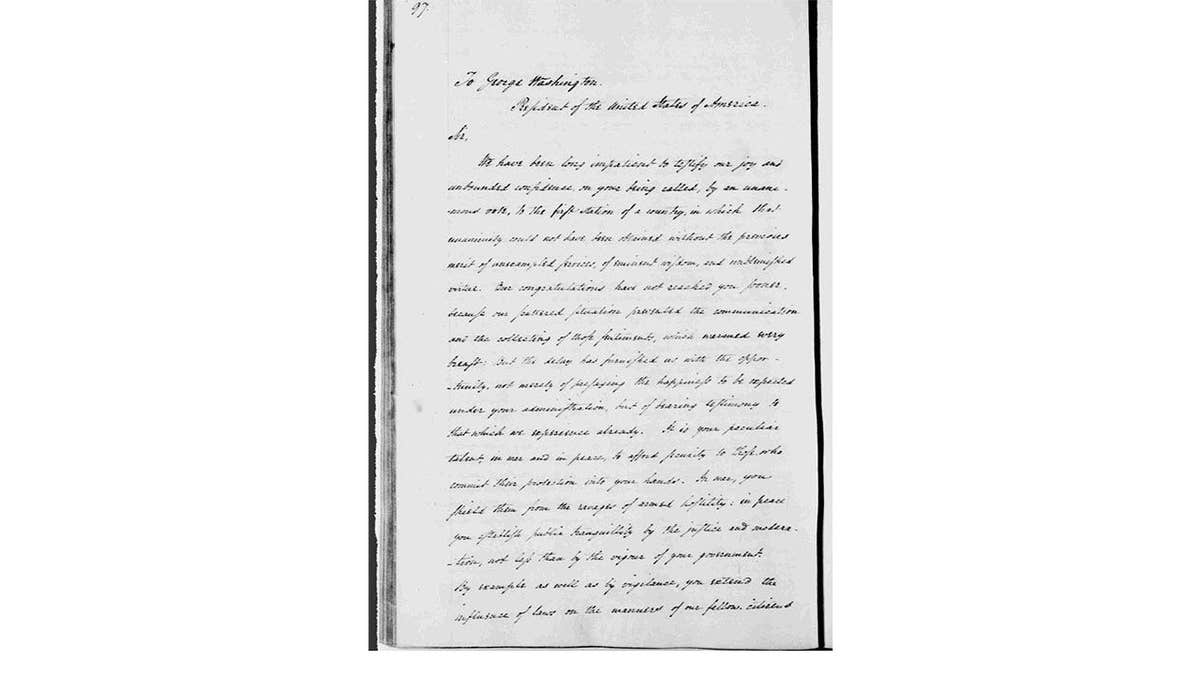 97.
To George Washington.
President of the United States of America.
Sir,
We have been long impatient to testify our joy and
unbounded confidence, on your being called, by an unani-
-mous vote, to the first station of a country, in which that
unanimity could not have been obtained without the previous
merit of unexampled services, of eminent wisdom, and unblemished
virtue. Our congratulations have not reached you sooner,
because our scattered situation prevented the communication
and the collecting of those sentiments, which warmed every
breast: But the delay has furnished us with the oppor-
-tunity, not merely of presaging the happiness to be expected
under your administration, but of bearing testimony to
that which we experience already. It is your peculiar
talent, in war and in peace, to afford security to those who
commit their protection into your hands. In war, you
shield them from the ravages of armed hostility: in peace
you establish public tranquillity by the justice and modera-
-tion, not less than by the vigour of your government.
By example as well as by vigilance, you extend the
influence of laws on the manners of our fellow-citizens